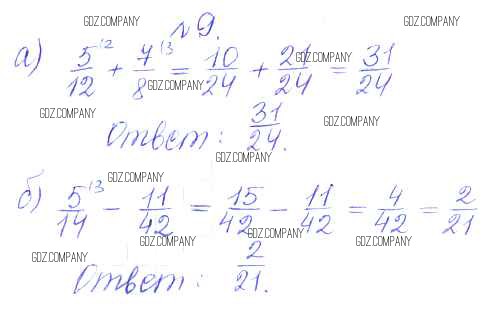 GDZ.COMPANY №9. GDZ.COMPANY
GDZ.COMPANY
а) 5/12 ^(2 + 7/8 ^(3 = 10/24 + 21/24 = 31/24
GDZ.COMPANY
GDZ.COMPANY GDZ.COMPANY
Ответ: 31/24.
GDZ.COMPANY
GDZ.COMPANY
б) 5/14 ^(3 - 11/42 = 15/42 - 11/42 = 4/42 = 2/21
GDZ.COMPANY GDZ.COMPANY GDZ.COMPANY
GDZ.COMPANY
Ответ: 2/21.